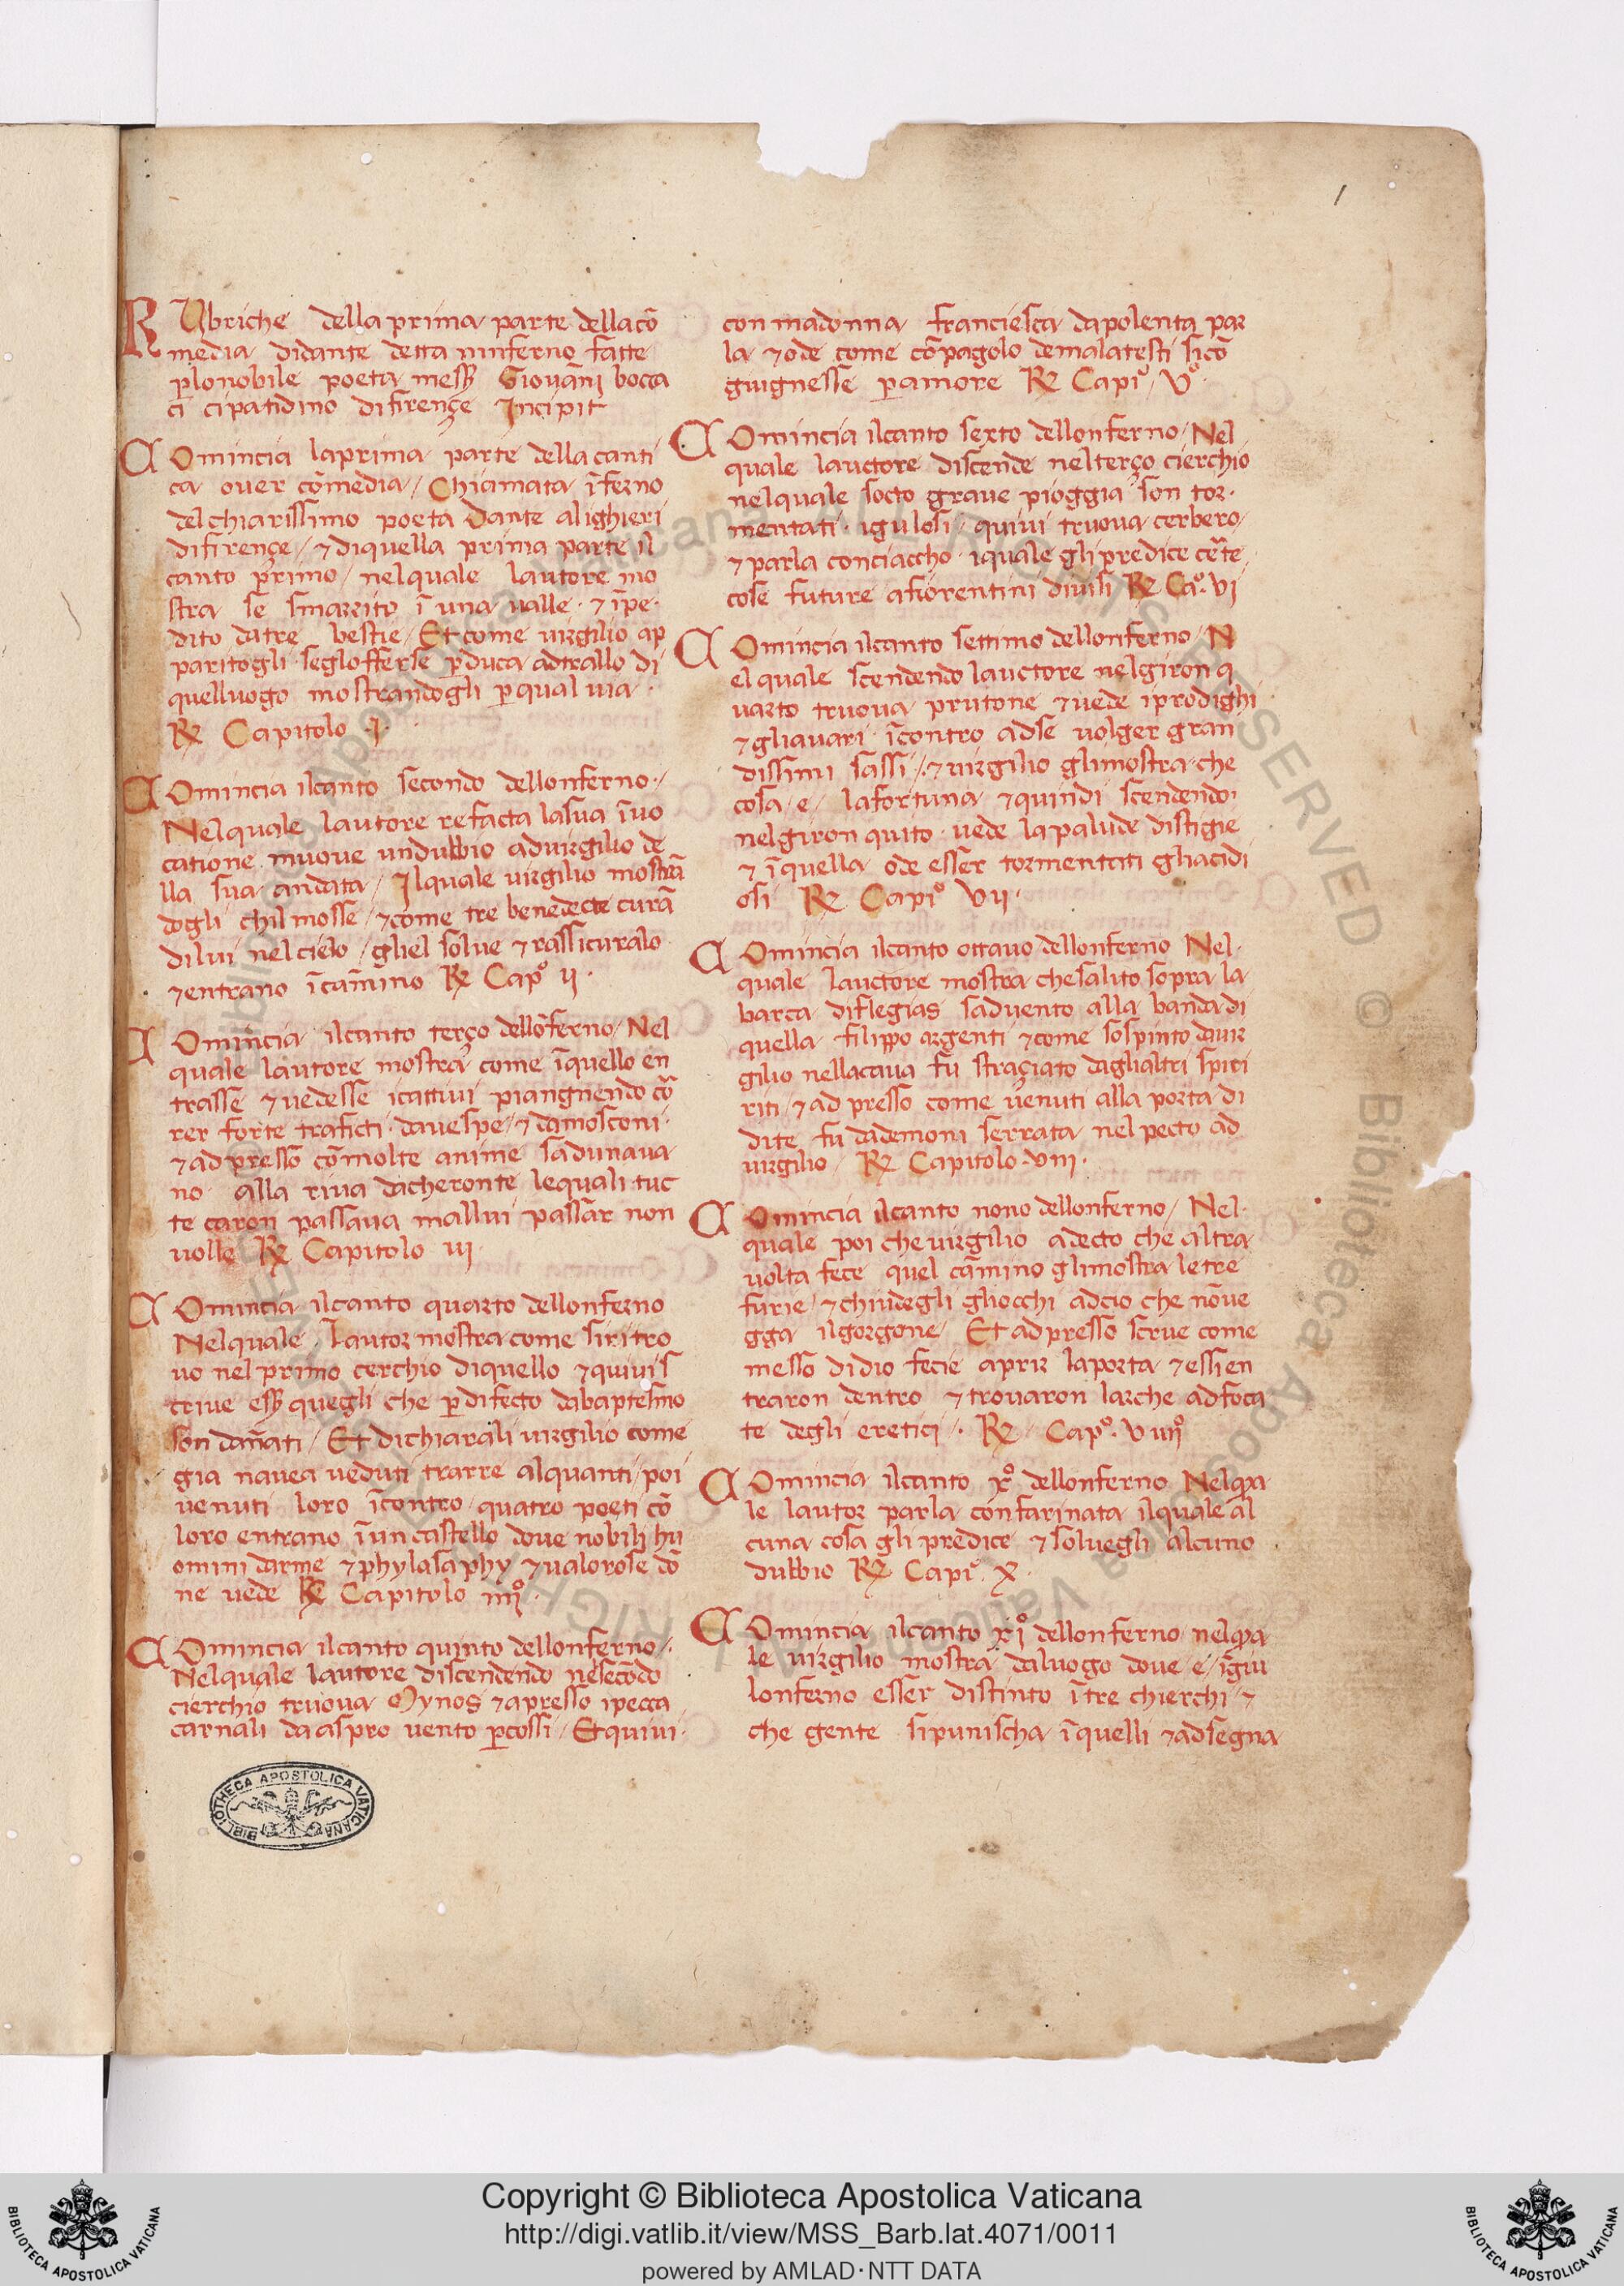 1
RUbriche della prima parte della cō
media didante detta ninferno fatte
ꝑlonobile poeta mesẜ Giovāni bocca
ci cipatidino difirençe Incipit
COmincia laprima parte della canti
ca over cōmedia / Chiamata īferno
delchiarissimo poeta Dante alighieri
difirençe / ⁊ diquella prima parte il
canto primo / nelquale lautore mo
stra se smarrito ī una ualle · ⁊ īpe·
dito datre bestie / Et come uirgilio ap
paritogli · seglofferse ꝑduca adtrallo di
quelluogo mostrandogli ꝑqual uia ·
℞ Capitolo ·I·
COmincia ilcanto secondo dellonferno ·/
Nelquale lautore refacta lasua īuo
catione muoue undubbio aduirgilio de
lla sua andata / Ilquale uirgilio mostrā
dogli chilmosse / ⁊come tre benedecte curā
dilui nelcielo / gliel solue ⁊ rassicuralo
⁊entrano īcāmino ℞ Capº ij ·
COmincia ilcanto terço dellōferno / Nel
quale lautore mostra come īquello en
trasse ⁊ uedesse icattiui piangnendo cō
rer forte traficti · dauespe / ⁊ damosconi ·
⁊adpresso cōmolte anime sadunaua
no · alla riua dacheronte lequali tuc
te caron passaua mallui passar non
uolle ℞ Capitolo iij ·
COmincia ilcanto quarto dellonferno
Nelquale · lautor mostra come siritro
uo nel primo cerchio diquello ⁊quiuis
criue esẜ quegli che ꝑdifecto dabaptesmo
son dānati / Et dichiarali uirgilio come
gia nauea ueduti trarre alquanti / poi
uenuti loro īcontro / quatro poeti cō
loro entrano īun castello doue nobili hu
omini darme ⁊phylasaphy ⁊ualorose dō
ne uede ℞ Capitolo iiijº ·
COmincia ilcanto quinto dellonferno / ·
Nelquale lautore discendendo nelsecōdo
cierchio truoua Mynos ⁊apresso ipecca
carnali da aspro uento ꝑcossi / Etquiui ·
con madonna franciesca dapolenta par
la ⁊ode come cōpagolo demalatesti sicō
giugnesse ꝑamore ℞ Capiº / Vº ·
COmincia ilcanto sexto dellonferno / Nel
quale lauctore discende nelterço cierchio
nelquale socto graue pioggia son tor·
mentati · igulosi / quiui truoua cerbero /
⁊ parla conciaccho · iquale gli predice cērte
cose future afiorentini diuisi ℞ Caº· VI
COmincia ilcanto settimo dellonferno / N
el quale scendendo lauctore nelgiron q
uarto truoua prutone ⁊uede iprodighi
⁊gliauari · īcontro adse uolger gran
dissimi sassi / · ⁊uirgilio glimostra · che
cosa · e / lafortuna ⁊quindi scendendoi
nelgiron quito · uede lapalude distigie
⁊ īquella ode esser tormentati gliacidi
osi ℞ Capiº VII ·
COmincia ilcanto ottauo dellonferno Nel·
quale lauctore mostra chesalito sopra la
barca diflegias saduento alla banda di
quella filippo argenti ⁊come sospinto dauir
gilio nellacaua fu straçiato daglialtri spiri
riti / ⁊ ad presso come uenuti alla porta di
dite fu dademoni serrata nel pecto ad
uirgilio / ℞ Capitolo · VIII ·
COmincia ilcanto nono dellonferno / Nel·
quale poi che uirgilio adecto che altra
uolta fece quel cāmino glimostra letre
furie / ⁊chiudegli gliocchi adcio che nōue
gga ilgorgone / Et adpresso scriue come
messo didio fecie aprir laporta ⁊essi en
traron dentro ⁊trouaron larche adfoca
te degli eretici · ℞ Capº· VIIIIº
COmincia ilcanto Xº dellonferno Nelqua
le lautor parla confarinata ilquale al
cuna cosa gli predice ⁊soluegli alcuno
dubbio ℞ Capiº · X ·
COmincia ilcanto XIº dellonferno nelqua
le uirgilio mostra daluogo doue · e / īgiu
lonferno esser distinto ītre chierchi / ⁊
che gente sipunischa īquelli ⁊adsegna
BIBLIOTHECA APOSTOLICA VATICANA
Copyright © Biblioteca Apostolica Vaticana
http://digi.vatlib.it/view/MSS_Barb.lat.4071/0011
powered by AMLAD·NTT DATA
BIBLIOTECA APOSTOLICA VATICANA
BIBLIOTECA APOSTOLICA VATICANA